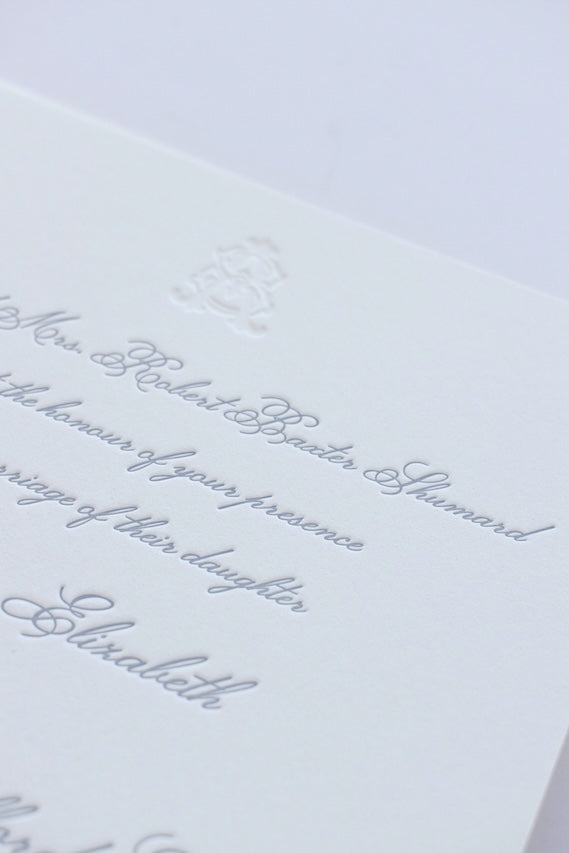 Mrs. Robert Baxter Shumard
the honour of your presence
of their daughter
Elizabeth